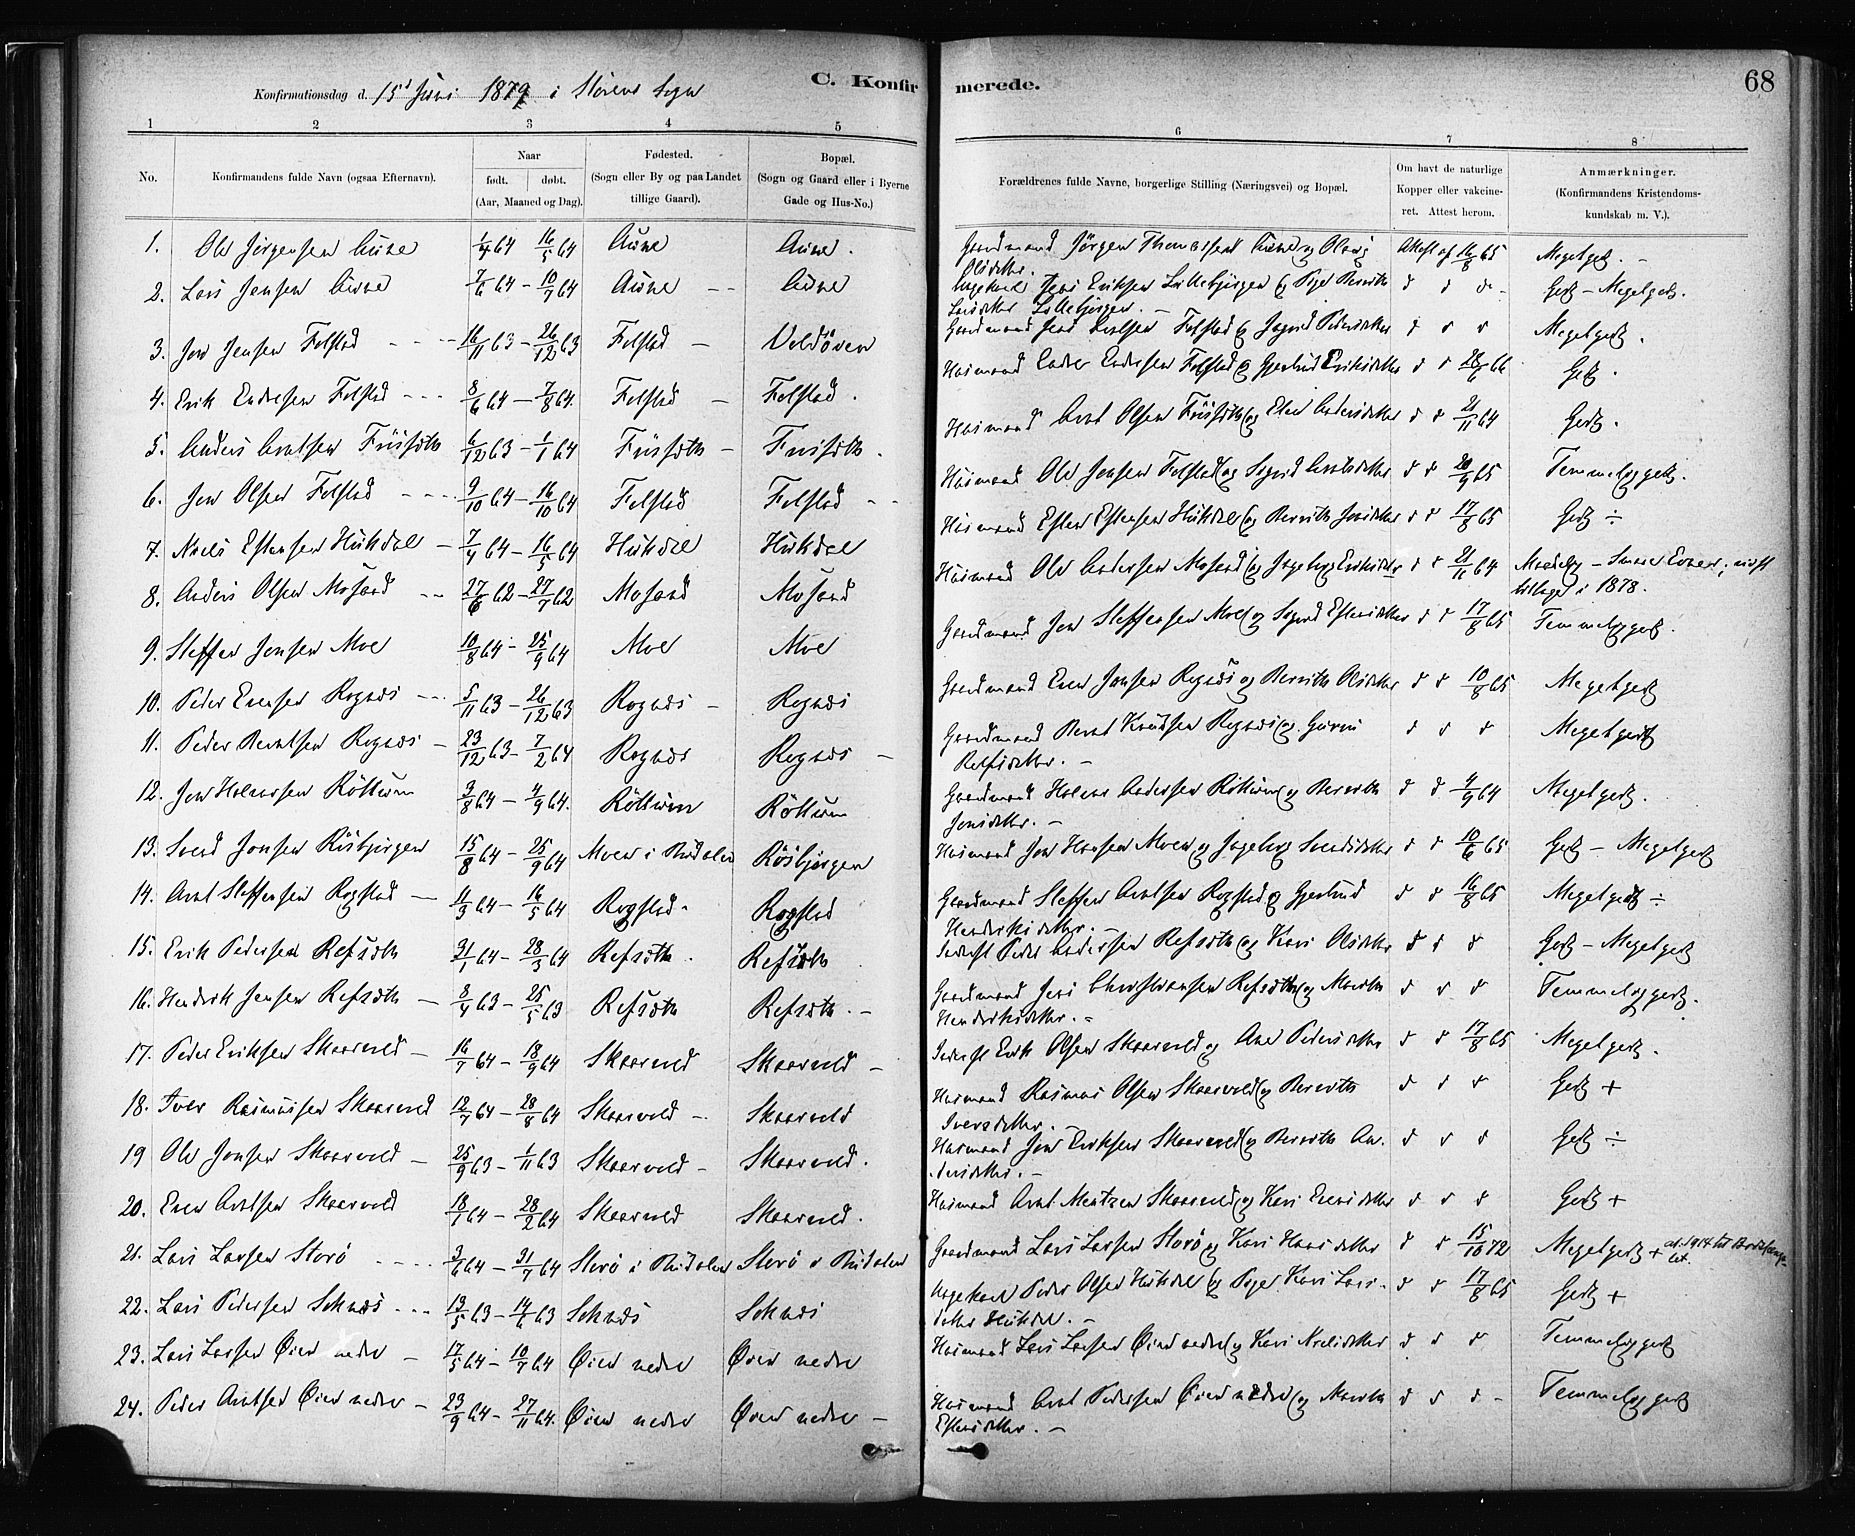 C. Konfirmerede.
68
Konfirmationsdag d. 15d Juni 1879 i Størens Sogn
1 2 3 4 5 6 7 8
No.
Konfirmandens fulde Navn (ogsaa Efternavn).
Naar
født. døbt.
(Aar, Maaned og Dag).
Fødested.
(Sogn eller By og paa Landet
tillige Gaard).
Bopæl.
(Sogn og Gaard eller i Byerne
Gade og Hus-No.)
Forældrenes fulde Navne, borgerlige Stilling (Næringsvei) og Bopæl.
Om havt de naturlige
Kopper eller vakcine-
ret. Attest herom.
Anmærkninger.
(Konfirmandens Kristendoms-
kundskab m. V.).
1. Ole Jørgensen Aune 1/4 64 16/5 64 Aune Aune. Gaardmand Jørgen Thomassen Aune og Olava Attest af 16/8 65 Meget godt. -
Olsdatter.
2. Lars Jensen Aune 7/6 64 - 10/7 64 Aune -- Aune Ungkarl Jens Eriksen Lillebjørgen og Pige Berith d d d - Godt - Meget godt.
Larsdatter Lillebjørgen. -
3. Jon Jensen Folstad 16/11 63 - 26/12 63 Folstad - Voldøien Gaardmand Jens Folstad og Ingrid Pedersdatter d d d Meget godt.
4. Erik Endresen Folstad 8/6 64 - 7/8 64. Folstad - Folstad. Husmand Endre Endresen Folstad og Gjertrud Eriksdatter d d 28/6 66 Godt.
5. Anders Arntsen Friisæth 6/12 63 - 1/1 64 Friisæth - Friisæth. Husmand Arnt Olsen Friisæth og Elen Andersdatter d d 21/11 64 Godt.
6. Jon Olsen Folstad 9/10 64 - 16/10 64 Folstad Folstad -- Husmand Ole Jonsen Folstad og Sigrid Arntsdatter d d 20/9 65 Temmelig godt.
7. Niels Estensen Hukdal - 7/4 64 - 16/5 64 Hukdal Hukdal Husmand Esten Estensen Hukdal og Berith Jonsdatter d d 17/8 65 Godt ÷
8. Anders Olsen Mosand -- 27/6 62 - 27/7 62 Mosand Mosand Husmand Ole Andersen Mosand og Ingeborg Eriksdatter d d 21/11 64 Maadelig - Svare Evner;
i 1878.
9. Steffen Jonsen Moe 10/8 64 - 25/9 64 Moe Moe Gaardmand Jon Steffensen Moe og Sigrid Estensdatter d d 17/8 65 Temmelig godt.
10. Peder Evensen Rognæs 5/11 63 - 26/12 63 Rognæs - Rognæs Gaardmand Even Jonsen Rognæs og Berith Olsdatter d d 10/8 65 Meget godt
11. Peder Berntsen Rognæs - 23/12 63 - 7/2 64 Rognæs Rognæs - Gaardmand Bernt Knudsen Rognæs og Guruu d d d Meget godt
Rolfsdatter. -
12. Jon Halvorsen Röttum 3/8 64 - 4/9 64. Röttum Röttum Gaardmand Halvor Andersen Röttum og Berith d d 4/9 64 Meget godt.
Jonsdatter. -
13. Svend Jonsen Rösbjörgen 15/8 64 - 25/9 64 Moen i Budalen Rösbjörgen Husmand Jon Hansen Moen og Ingeborg Svendsdatter d d 10/6 65 Godt - Meget godt
14. Arnt Steffensen Rogstad - 11/3 64 - 16/5 64 Rogstad. Rogstad Gaardmand Steffen Arntsen Rogstad og Gjertrud d d 16/8 65 Meget godt ÷
Henderksdatter. -
15. Erik Pedersen Refsæth 31/1 64 - 28/3 64 Refsæth. Refsæth Inderst Peder Andersen Refsæth og Kari Olsdatter d d d Godt - Meget godt
16. Henderk Jensen Refsæth - 8/4 63 - 25/5 63 Refsæth Refsæth. - Gaardmand Jens Christiansen Refsæth og Marith d d d Temmelig godt.
Henderksdatter. -
17. Peder Eriksen Skaarvold - 16/7 64 - 18/9 64 Skaarvold Skaarvold - Inderst Erik Olsen Skaarvold og Ane Pedersdatter d d 17/8 65 Meget godt.
18. Iver Rasmussen Skaarvold 12/7 64 - 28/8 64 Skaarvold -. Skaarvold Husmand Rasmus Olsen Skaarvold og Berith d d d Godt +
Iversdatter. -
19 Ole Jonsen Skaarvold - 25/9 63 - 1/11 63 Skaarvold - Skaarvold. Husmand Jon Eriksen Skaarvold og Berith An- d d d Godt ÷
dersdatter. -
20. Even Arntsen Skaarvold 18/1 64 - 28/2 64 Skaarvold Skaarvold. Husmand Arnt Mentzen Skaarvold og Kari Evensdatter d d d Godt +
21. Lars Larsen Storö 3/6 64 - 31/7 64 Storö i Budalen Storö i Budalen Gaardmand Lars Larsen Storö og Kari Hansdatter d d 15/10 72 Meget godt +
22. Lars Pedersen Soknæs 13/5 63 - 14/6 63 Soknæs Soknæs Ungkarl Peder Olsen Hukdal og Pige Kari Lars- d d 17/8 65 Godt +
datter Hukdal. -
23. Lars Larsen Øien nedre - 17/5 64 - 10/7 64 Øien nedre Øien nedre Husmand Lars Larsen Øien nedre og Kari Nielsdatter d d d Temmelig godt
24. Peder Arntsen Øien nedre - 23/9 64 - 27/11 64. Øien nedre Øien nedre - Husmand Arnt Pedersen Øien nedre og Marith d d d - Temmelig godt
Estensdatter. -